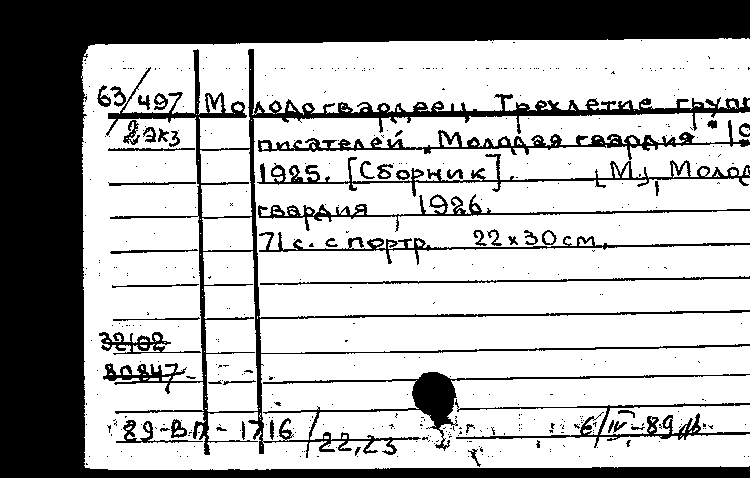 63/497 Молодогвардеец. Трехлетие групп
2 экз писателей „Молодая гвардия" 19
1925. [Сборник]. [М.], Молод
гвардия, 1926.
71 с. с портр. 22 х 30 см.
32102
80847
89-ВП-1716/22,23 6/IV-89